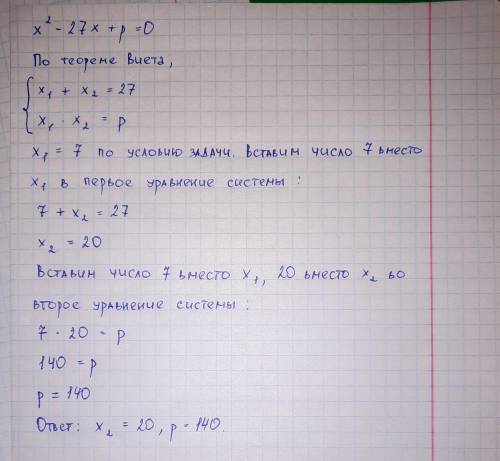 x² - 27x + p = 0
По теореме Виета,
x₁ + x₂ = 27
x₁ · x₂ = p
x₁ = 7 по условию задачи. Вставим число 7 вместо
x₁ в первое уравнение системы :
7 + x₂ = 27
x₂ = 20
Вставим число 7 вместо x₁, 20 вместо x₂ во
второе уравнение системы :
7 · 20 = p
140 = p
p = 140
Ответ: x₂ = 20, p - 140.